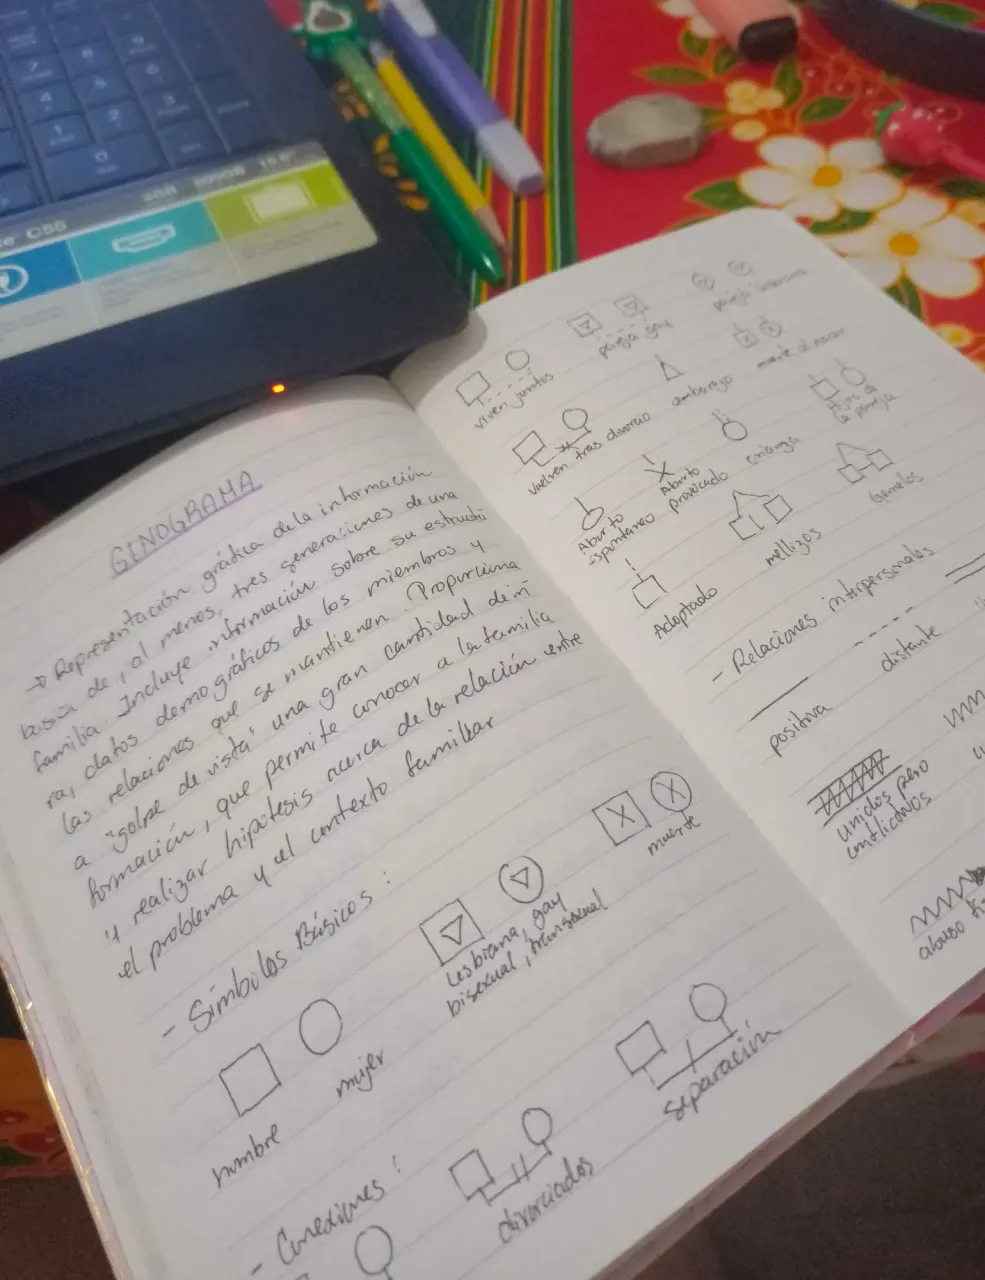 C55
4GB 500GB 15.6"
GENOGRAMA
→ Representación gráfica de la información
básica de, al menos, tres generaciones de una
familia. Incluye información sobre su estructu
ra, datos demográficos de los miembros y
las relaciones que se mantienen. Proporciona
a "golpe de vista" una gran cantidad de in
formación, que permite conocer a la familia
y realizar hipótesis acerca de la relación entre
el problema y el contexto familiar
- Símbolos Básicos:
hombre
mujer
Lesbiana, gay
bisexual, transexual
muerte
- Conexiones:
divorciados
separación
viven juntos
pareja gay
pareja lesbiana
Vuelven tras divorcio
embarazo
muerte al nacer
Aborto
espontaneo
Aborto
provocado
crianza
hijos de
la pareja
Adoptado
mellizos
Gemelos
- Relaciones interpersonales
positiva
distante
unidos pero
conflictivos
abuso